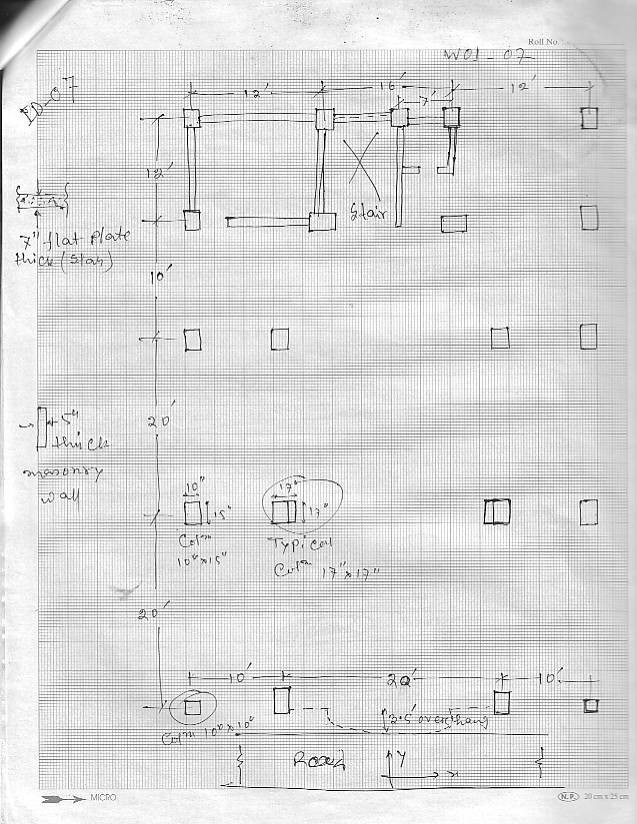 Roll No.
W01-07
ID-07
12' 16' 12'
7'
12'
Stair
7" flat plate
thick (Slab)
10'
20'
5"
thick
masonry
wall
10" 17"
15" 17"
Colm Typical
10"x15" Colm 17"x17"
20'
10' 20' 10'
3.5' overhang
Colm 10"x10"
Road
Y
x
MICRO
N.P. 20 cm x 25 cm